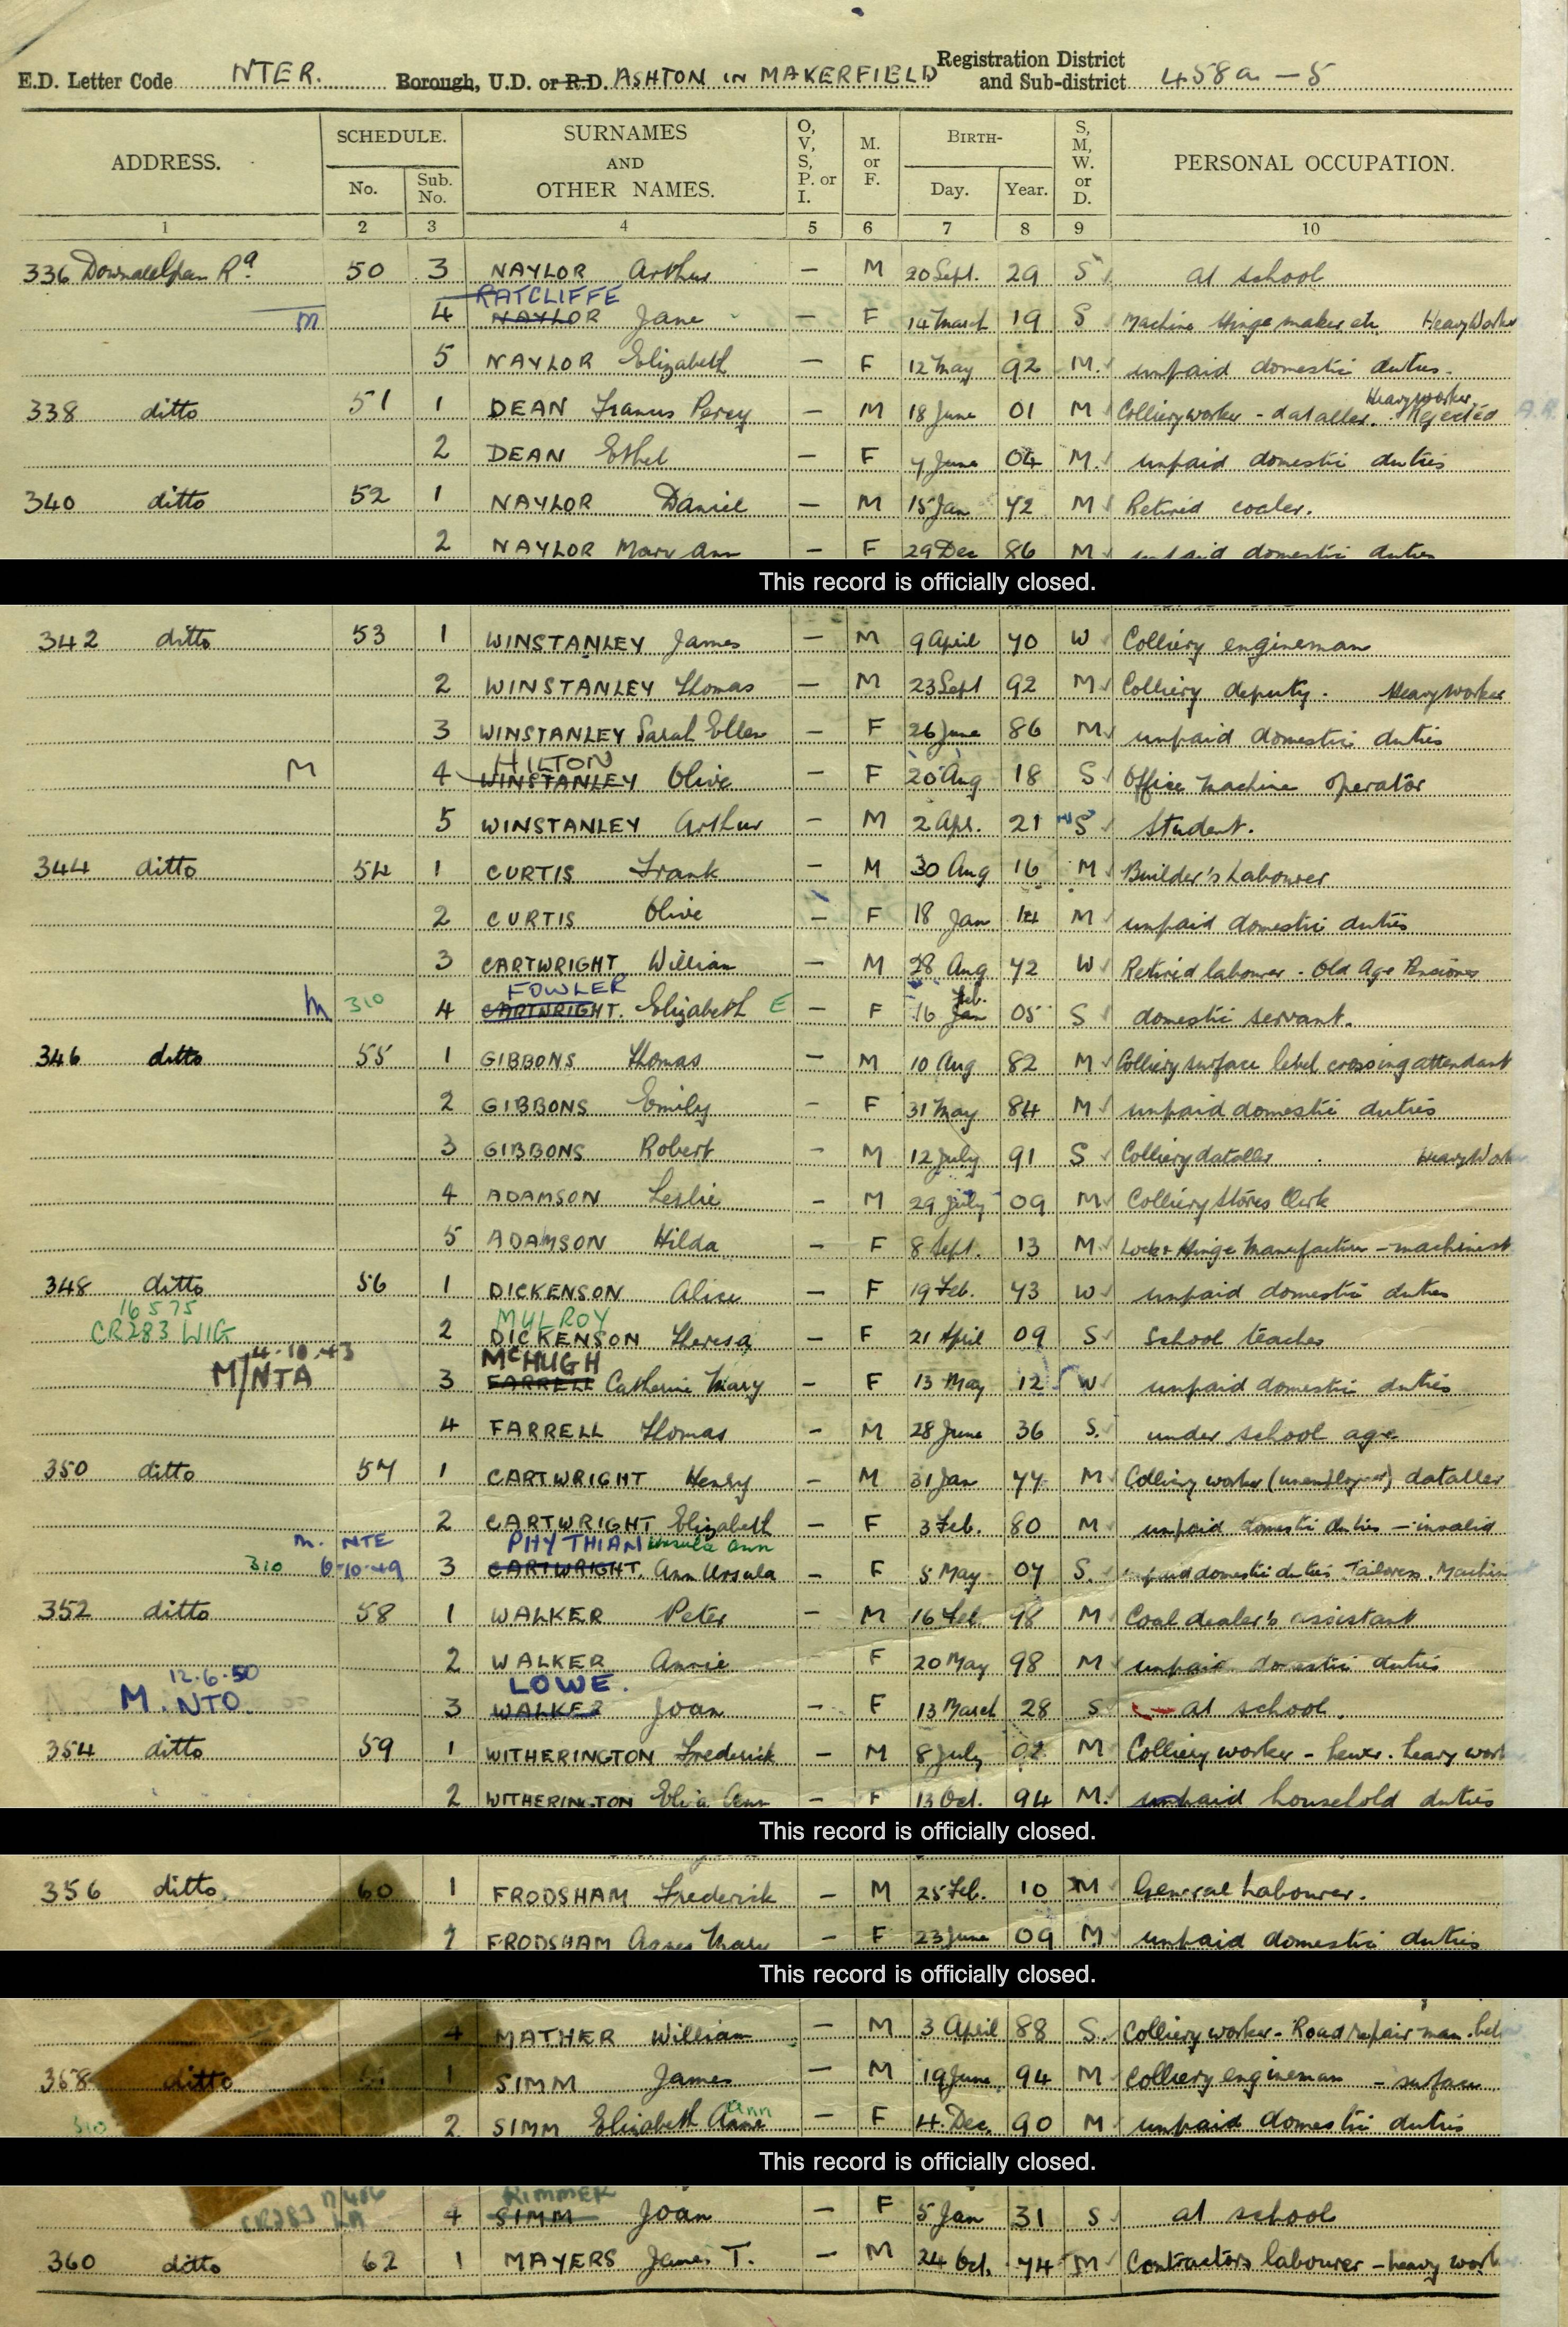 E.D. Letter Code NTER. Borough, U.D. or R.D. ASHTON IN MAKERFIELD Registration District and Sub-district 458a - 5
ADDRESS. SCHEDULE. No. Sub. No. SURNAMES AND OTHER NAMES. O, V, S, P. or I. M. or F. BIRTH- Day. Year. S, M, W. or D. PERSONAL OCCUPATION.
1 2 3 4 5 6 7 8 9 10
336 Downall Green Rd. 50 3 NAYLOR Arthur — M 20 Sept. 29 S at school
RATCLIFFE
m 4 NAYLOR Jane — F 14 March 19 S Machine Hinge maker etc. Heavy Worker
5 NAYLOR Elizabeth — F 12 May 92 M. unpaid domestic duties.
Heavy worker
338 ditto 51 1 DEAN Francis Percy — M 18 June 01 M Colliery worker - dataller. Rejected A.R.
2 DEAN Ethel — F 7 June 04 M. unpaid domestic duties
340 ditto 52 1 NAYLOR Daniel — M 15 Jan 72 M Retired
2 NAYLOR Mary Ann — F 29 Dec 86 M unpaid domestic duties
This record is officially closed.
342 ditto 53 1 WINSTANLEY James — M 9 April 70 W Colliery engineman
2 WINSTANLEY Thomas — M 23 Sept 92 M Colliery deputy. Heavy worker
3 WINSTANLEY Sarah Ellen — F 26 June 86 M unpaid domestic duties
HILTON
M 4 WINSTANLEY Olive — F 20 Aug 18 S Office machine operator
5 WINSTANLEY Arthur — M 2 Apr. 21 S Student.
344 ditto 54 1 CURTIS Frank — M 30 Aug 16 M Builder's Labourer
2 CURTIS Olive — F 18 Jan 14 M unpaid domestic duties
3 CARTWRIGHT William — M 28 Aug 72 W Retired labourer - Old Age Pensioner
FOWLER Feb.
m 310 4 CARTWRIGHT. Elizabeth E — F 16 Jan 05 S domestic servant.
346 ditto 55 1 GIBBONS Thomas — M 10 Aug 82 M Colliery surface level crossing attendant
2 GIBBONS Emily — F 31 May 84 M unpaid domestic duties
3 GIBBONS Robert — M 12 July 91 S Colliery dataller Heavy Work
4 ADAMSON Leslie — M 29 July 09 M Colliery Stores Clerk
5 ADAMSON Hilda — F 8 Sept. 13 M Lock & Hinge Manufacture - machinist
348 ditto 56 1 DICKENSON Alice — F 19 Feb. 73 W unpaid domestic duties
16575 MULROY
CR283 WIG 2 DICKENSON Theresa — F 21 April 09 S School teacher
4.10.43 McHUGH
M/NTA 3 FARRELL Catherine Mary — F 13 May 12 W unpaid domestic duties
4 FARRELL Thomas — M 28 June 36 S. under school age
350 ditto 57 1 CARTWRIGHT Henry — M 31 Jan 77 M Colliery worker (unemployed) dataller
2 CARTWRIGHT Elizabeth — F 3 Feb. 80 M unpaid domestic duties - invalid
m. NTE PHYTHIAN Ursula Ann
310 6-10-49 3 CARTWRIGHT. Ann Ursula — F 5 May 07 S. unpaid domestic duties Tailoress. Machin
352 ditto 58 1 WALKER Peter — M 16 Feb. 98 M Coal dealer's assistant
2 WALKER Annie F 20 May 98 M unpaid domestic duties
12.6.50 LOWE.
M. NTO. 3 WALKER Joan — F 13 March 28 S at school.
354 ditto 59 1 WITHERINGTON Frederick — M 8 July 02 M Colliery worker - hewer. heavy work
2 WITHERINGTON Ann — F 13 Oct. 94 M. unpaid household duties
This record is officially closed.
356 ditto 60 1 FRODSHAM Frederick — M 25 Feb. 10 M General Labourer.
2 FRODSHAM Agnes Mary — F 23 June 09 M unpaid domestic duties
This record is officially closed.
4 MATHER William — M 3 April 88 S. Colliery worker - Road repair man.
358 ditto 61 1 SIMM James — M 19 June 94 M Colliery engineman - surface
Ann
310 2 SIMM Elizabeth Anne — F 4 Dec. 90 M unpaid domestic duties
This record is officially closed.
RIMMER
CR283 4 SIMM Joan — F 5 Jan 31 S at school
360 ditto 62 1 MAYERS James T. — M 24 Oct. 74 M Contractors labourer - heavy work